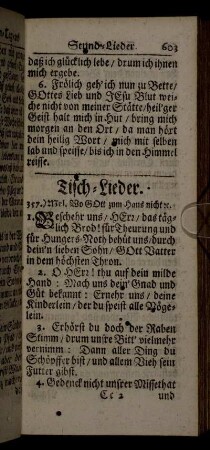 Stund-Lieder. 603
daß ich glücklich lebe / drum ich ihnen
mich ergebe.
6. Frölich geh' ich nun zu Bette /
GOttes Lieb und JEsu Blut wei-
che nicht von meiner Stätte / heil'ger
Geist halt mich in Hut / bring mich
morgen an den Ort / da man hört
dein heilig Wort / mich mit selben
lab und speisse / bis ich in den Himmel
reisse.
Tisch-Lieder.
357. Mel. Wo GOtt zum Haus nicht ꝛc.
1. Beschehr uns / HErr / das täg-
lich Brod! für Theurung und
für Hungers-Noth behüt uns / durch
dein'n lieben Sohn / GOtt Vatter
in dem höchsten Thron.
2. O HErr! thu auf dein milde
Hand: Mach uns dein' Gnad und
Güt bekannt: Ernehr uns / deine
Kinderlein / der du speist alle Vöge-
lein.
3. Erhörst du doch der Raben
Stimm / drum unsre Bitt' vielmehr
vernimm: Dann aller Ding du
Schöpffer bist / und allem Vieh sein
Futter gibst.
4. Gedenck nicht unsrer Missethat
Cc 2 und